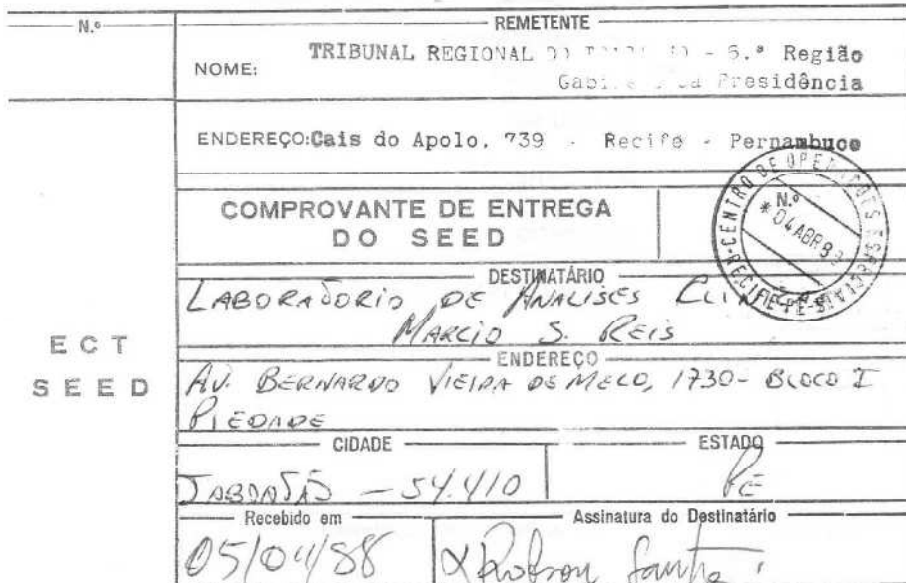 N.º
REMETENTE
NOME: TRIBUNAL REGIONAL DO - 6.ª Região
Presidência
ENDEREÇO: Cais do Apolo, 739 - Recife - Pernambuco
COMPROVANTE DE ENTREGA
DO SEED
N.º
CENTRO DE OPERAÇÕES ESPECIAIS
* 04 ABR 88
RECIFE-PE
DESTINATÁRIO
LABORATORIO DE ANALISES CLINICAS
MARCIO S. REIS
ECT
SEED
ENDEREÇO
AV. BERNARDO VIEIRA DE MELO, 1730 - BLOCO I
PIEDADE
CIDADE
ESTADO
JABOATÃO - 54.410
PE
Recebido em
Assinatura do Destinatário
05/04/88
Robson